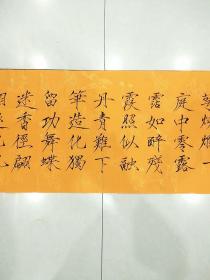 灼爍一
庭中零露
霑如醉殘
霞照似融
丹青難下
筆造化獨
留功舞蝶
迷香徑翩